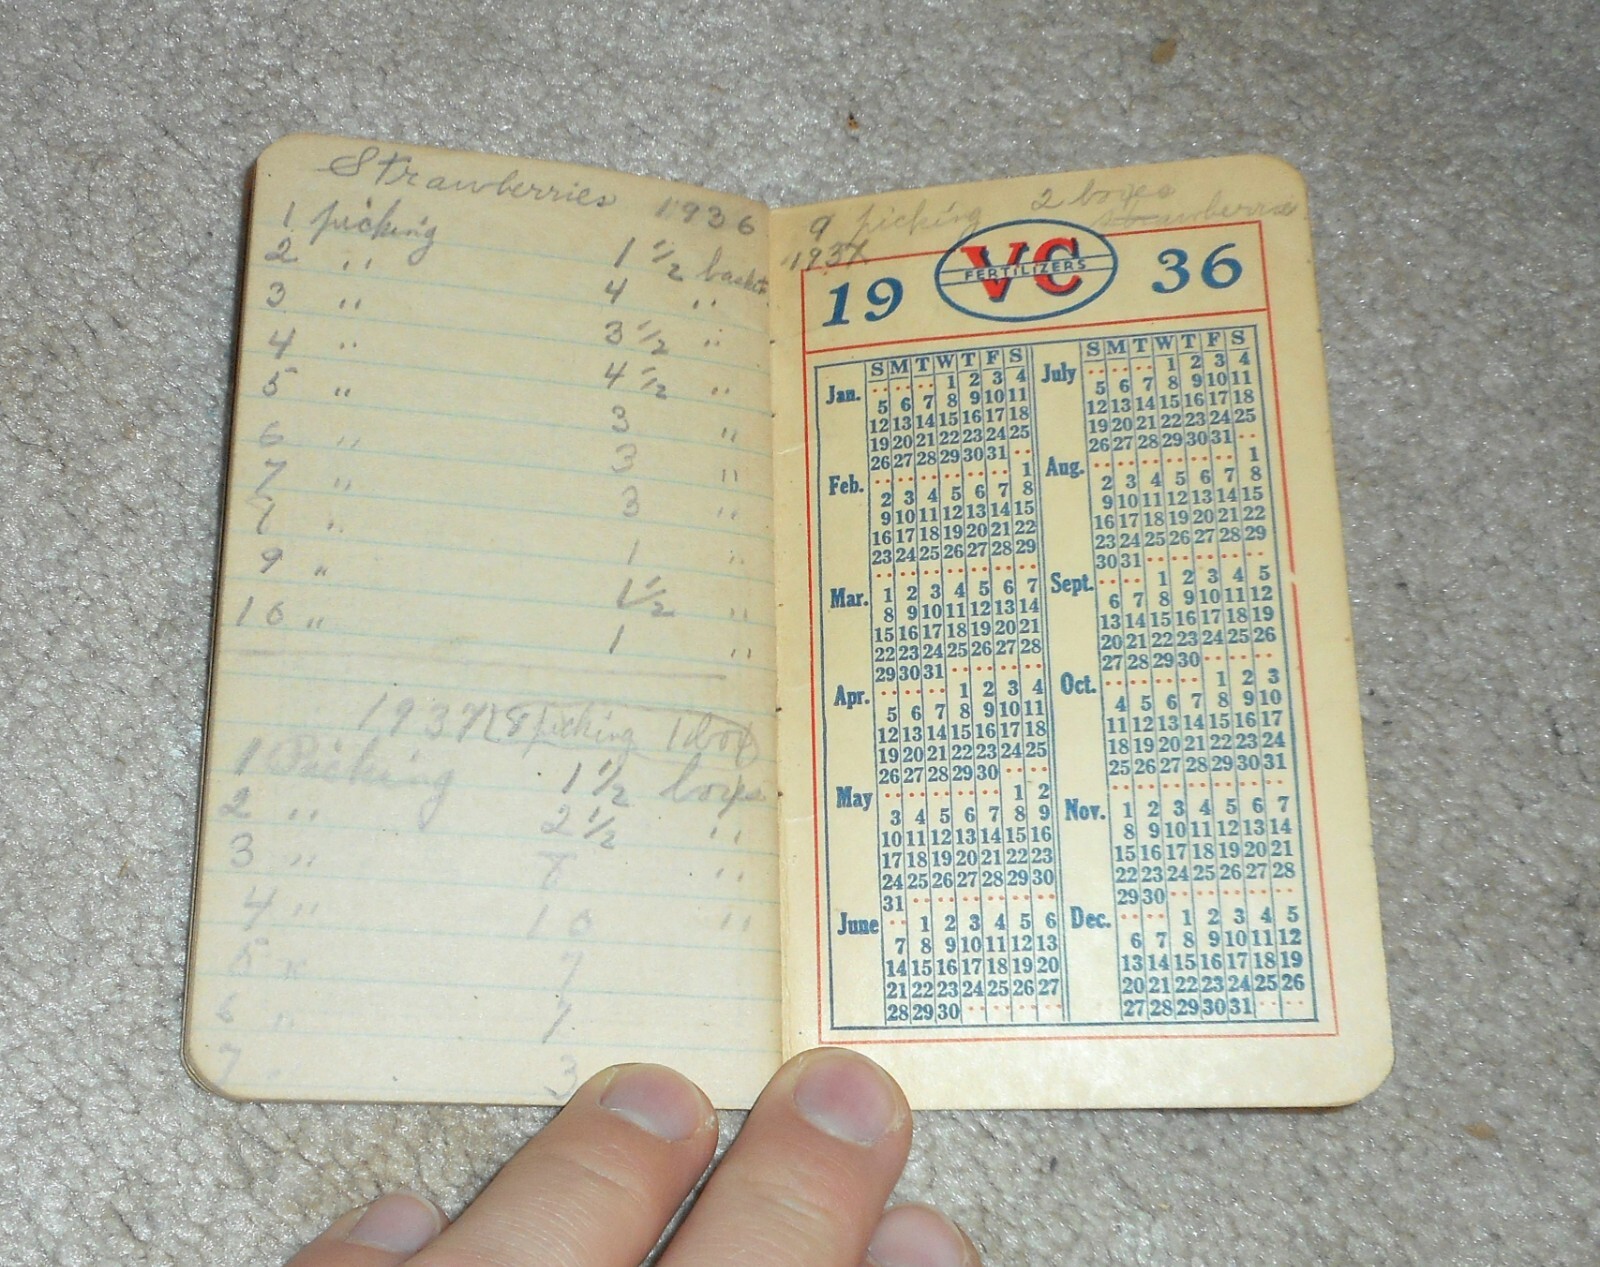 Strawberries 1936
1 picking 1 1/2 baskets
2 " 4 "
3 " 3 1/2 "
4 " 4 1/2 "
5 " 3 "
6 " 3 "
7 " 3 "
" 1 "
9 " 1 1/2 "
10 " 1 "
1937 8 picking 1 box
1 Picking 1 1/2 boxes
2 " 2 1/2 "
3 " 8 "
4 " 10 "
5 " 7
6 " 7
7 " 3
9 picking 2 boxes
strawberries
1937
19 VC FERTILIZERS 36
S M T W T F S
Jan. 1 2 3 4
5 6 7 8 9 10 11
12 13 14 15 16 17 18
19 20 21 22 23 24 25
26 27 28 29 30 31
Feb. 1
2 3 4 5 6 7 8
9 10 11 12 13 14 15
16 17 18 19 20 21 22
23 24 25 26 27 28 29
Mar. 1 2 3 4 5 6 7
8 9 10 11 12 13 14
15 16 17 18 19 20 21
22 23 24 25 26 27 28
29 30 31
Apr. 1 2 3 4
5 6 7 8 9 10 11
12 13 14 15 16 17 18
19 20 21 22 23 24 25
26 27 28 29 30
May 1 2
3 4 5 6 7 8 9
10 11 12 13 14 15 16
17 18 19 20 21 22 23
24 25 26 27 28 29 30
31
June 1 2 3 4 5 6
7 8 9 10 11 12 13
14 15 16 17 18 19 20
21 22 23 24 25 26 27
28 29 30
S M T W T F S
July 1 2 3 4
5 6 7 8 9 10 11
12 13 14 15 16 17 18
19 20 21 22 23 24 25
26 27 28 29 30 31
Aug. 1
2 3 4 5 6 7 8
9 10 11 12 13 14 15
16 17 18 19 20 21 22
23 24 25 26 27 28 29
30 31
Sept. 1 2 3 4 5
6 7 8 9 10 11 12
13 14 15 16 17 18 19
20 21 22 23 24 25 26
27 28 29 30
Oct. 1 2 3
4 5 6 7 8 9 10
11 12 13 14 15 16 17
18 19 20 21 22 23 24
25 26 27 28 29 30 31
Nov. 1 2 3 4 5 6 7
8 9 10 11 12 13 14
15 16 17 18 19 20 21
22 23 24 25 26 27 28
29 30
Dec. 1 2 3 4 5
6 7 8 9 10 11 12
13 14 15 16 17 18 19
20 21 22 23 24 25 26
27 28 29 30 31